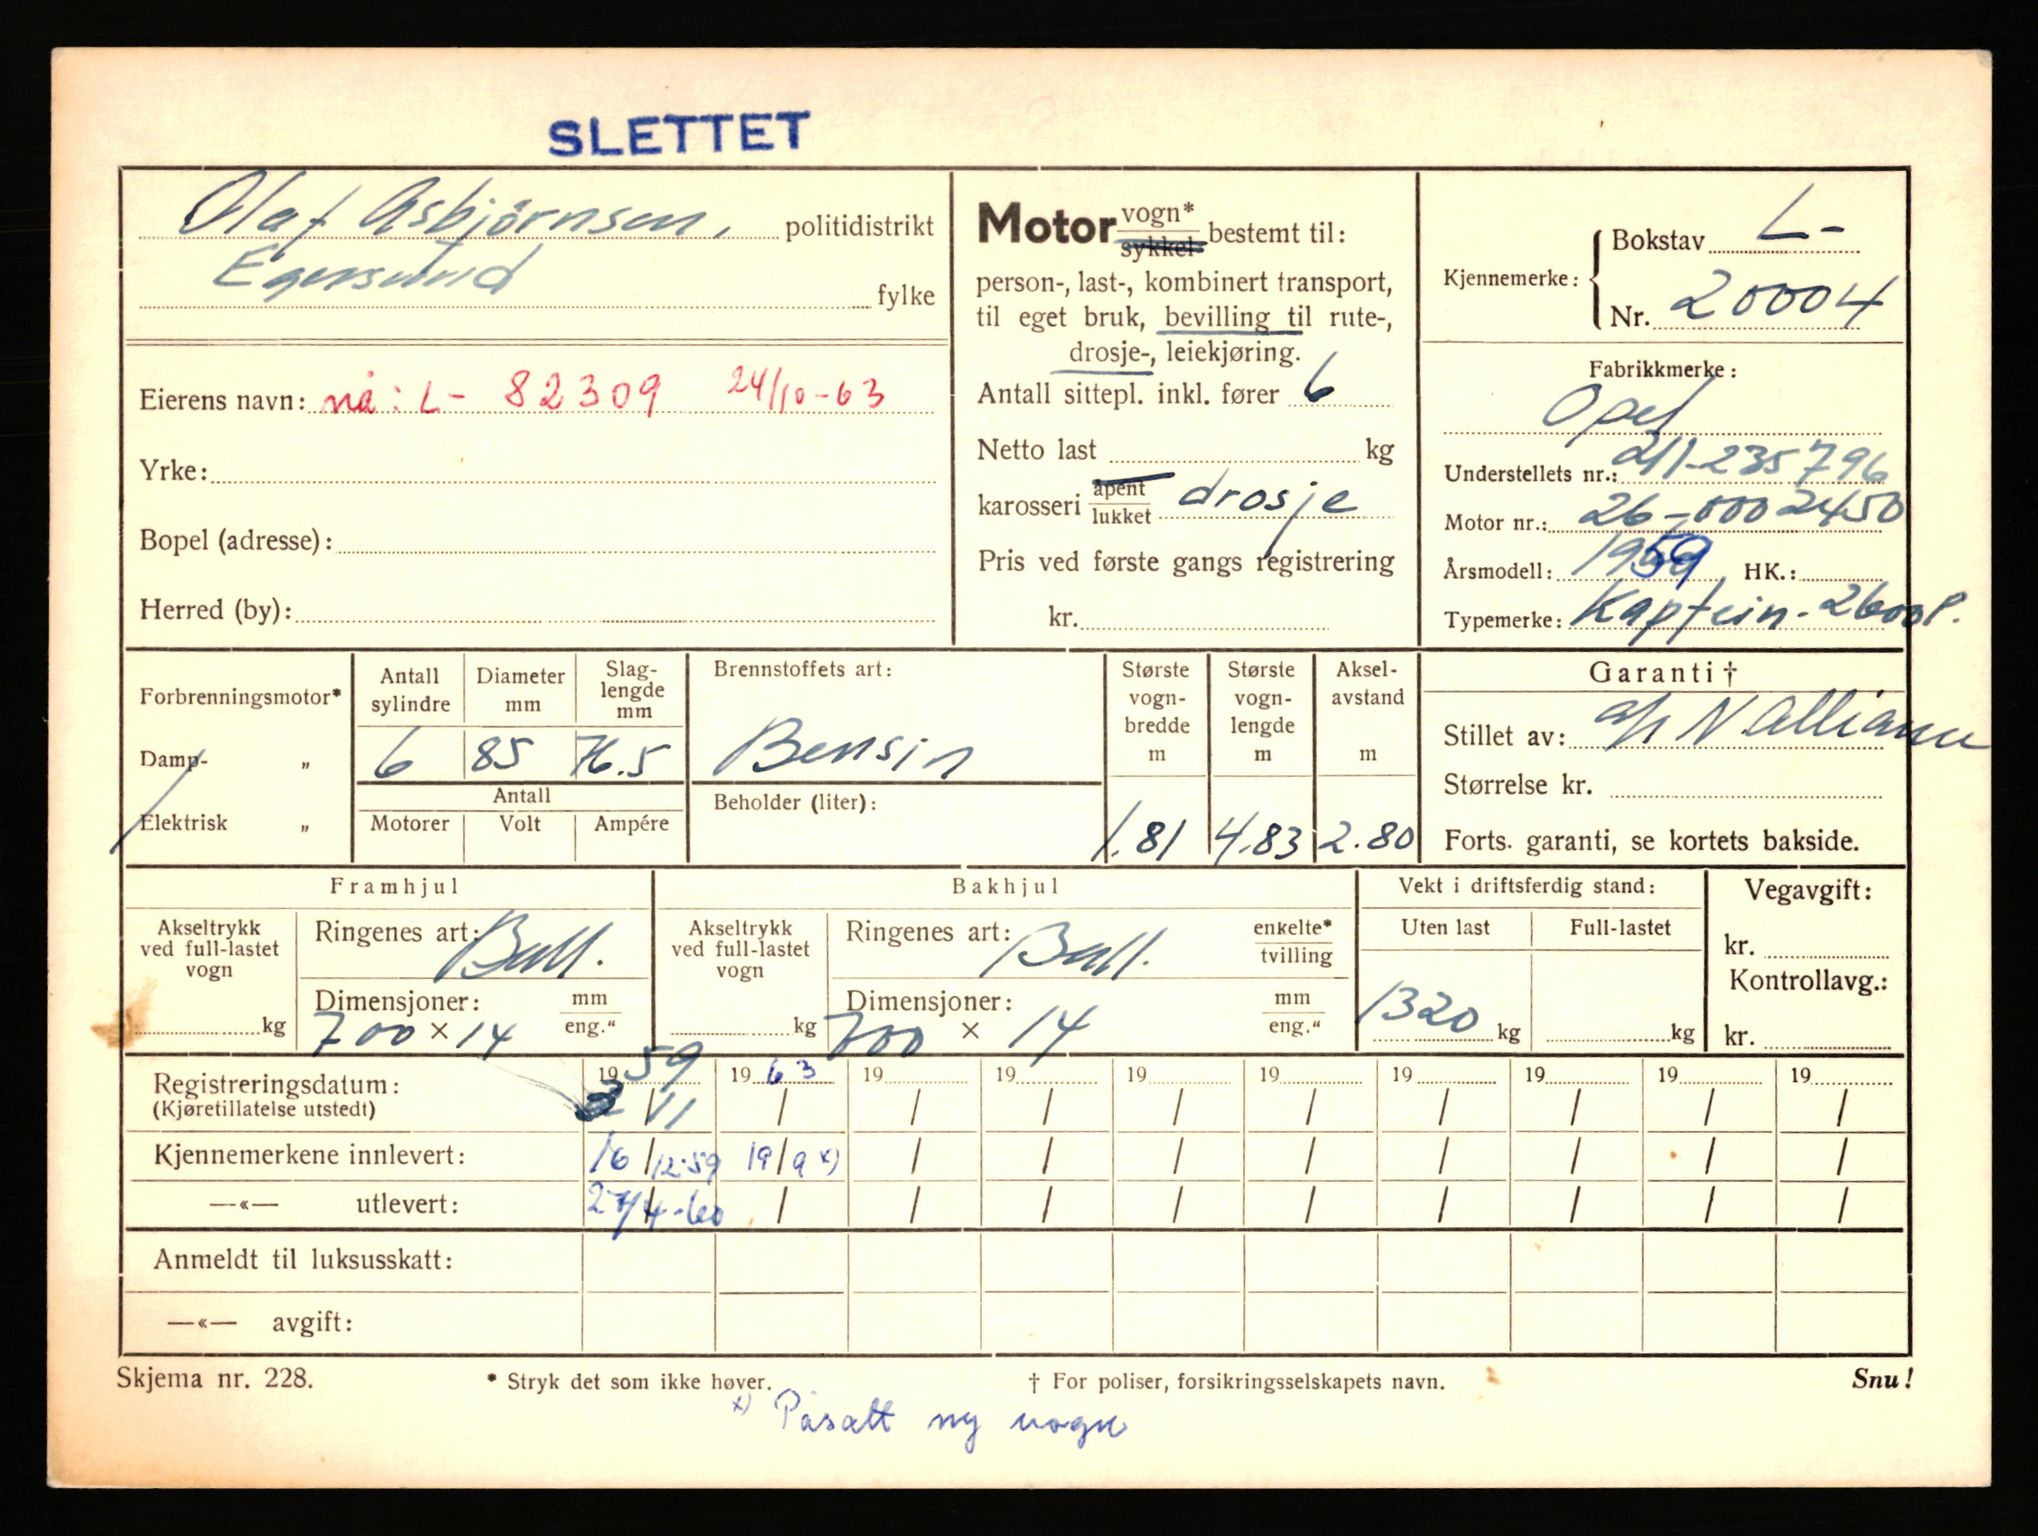 SLETTET
Olaf Asbjørnsen, politidistrikt
Egersund fylke
Eierens navn: nå: L- 82309 24/10-63
Yrke:
Bopel (adresse):
Herred (by):
Motor vogn* sykkel bestemt til:
person-, last-, kombinert transport,
til eget bruk, bevilling til rute-,
drosje-, leiekjøring.
Antall sittepl. inkl. fører 6
Netto last kg
karosseri åpent lukket drosje
Pris ved første gangs registrering
kr.
Kjennemerke: Bokstav L-
Nr. 20004
Fabrikkmerke:
Opel
Understellets nr.: 211-235796
Motor nr.: 26-0002450
Årsmodell: 1959 HK.:
Typemerke: Kaptein-2600P.
Forbrenningsmotor*
Damp- "
Elektrisk "
Antall sylindre
6
Diameter mm
85
Slag-lengde mm
76.5
Antall
Motorer Volt Ampére
Brennstoffets art:
Bensin
Beholder (liter):
Største vogn-bredde m
1.81
Største vogn-lengde m
4.83
Aksel-avstand m
2.80
Garanti †
Stillet av: N. Alliance
Størrelse kr.
Forts. garanti, se kortets bakside.
Framhjul
Akseltrykk ved full-lastet vogn
kg
Ringenes art: Ball.
Dimensjoner: mm eng."
700 × 14
Bakhjul
Akseltrykk ved full-lastet vogn
kg
Ringenes art: Ball. enkelte* tvilling
Dimensjoner: mm eng."
700 × 14
Vekt i driftsferdig stand:
Uten last Full-lastet
1320 kg kg
Vegavgift:
kr.
Kontrollavg.:
kr.
Registreringsdatum: 1959 1963 19 19 19 19 19 19 19 19
(Kjøretillatelse utstedt) / 11 / / / / / / / / /
Kjennemerkene innlevert: 16/12-59 19/9 x) / / / / / / / /
—«— utlevert: 27/4-60 / / / / / / / / /
Anmeldt til luksusskatt:
—«— avgift:
Skjema nr. 228. * Stryk det som ikke høver. † For poliser, forsikringsselskapets navn. Snu!
x) Påsatt ny vogn